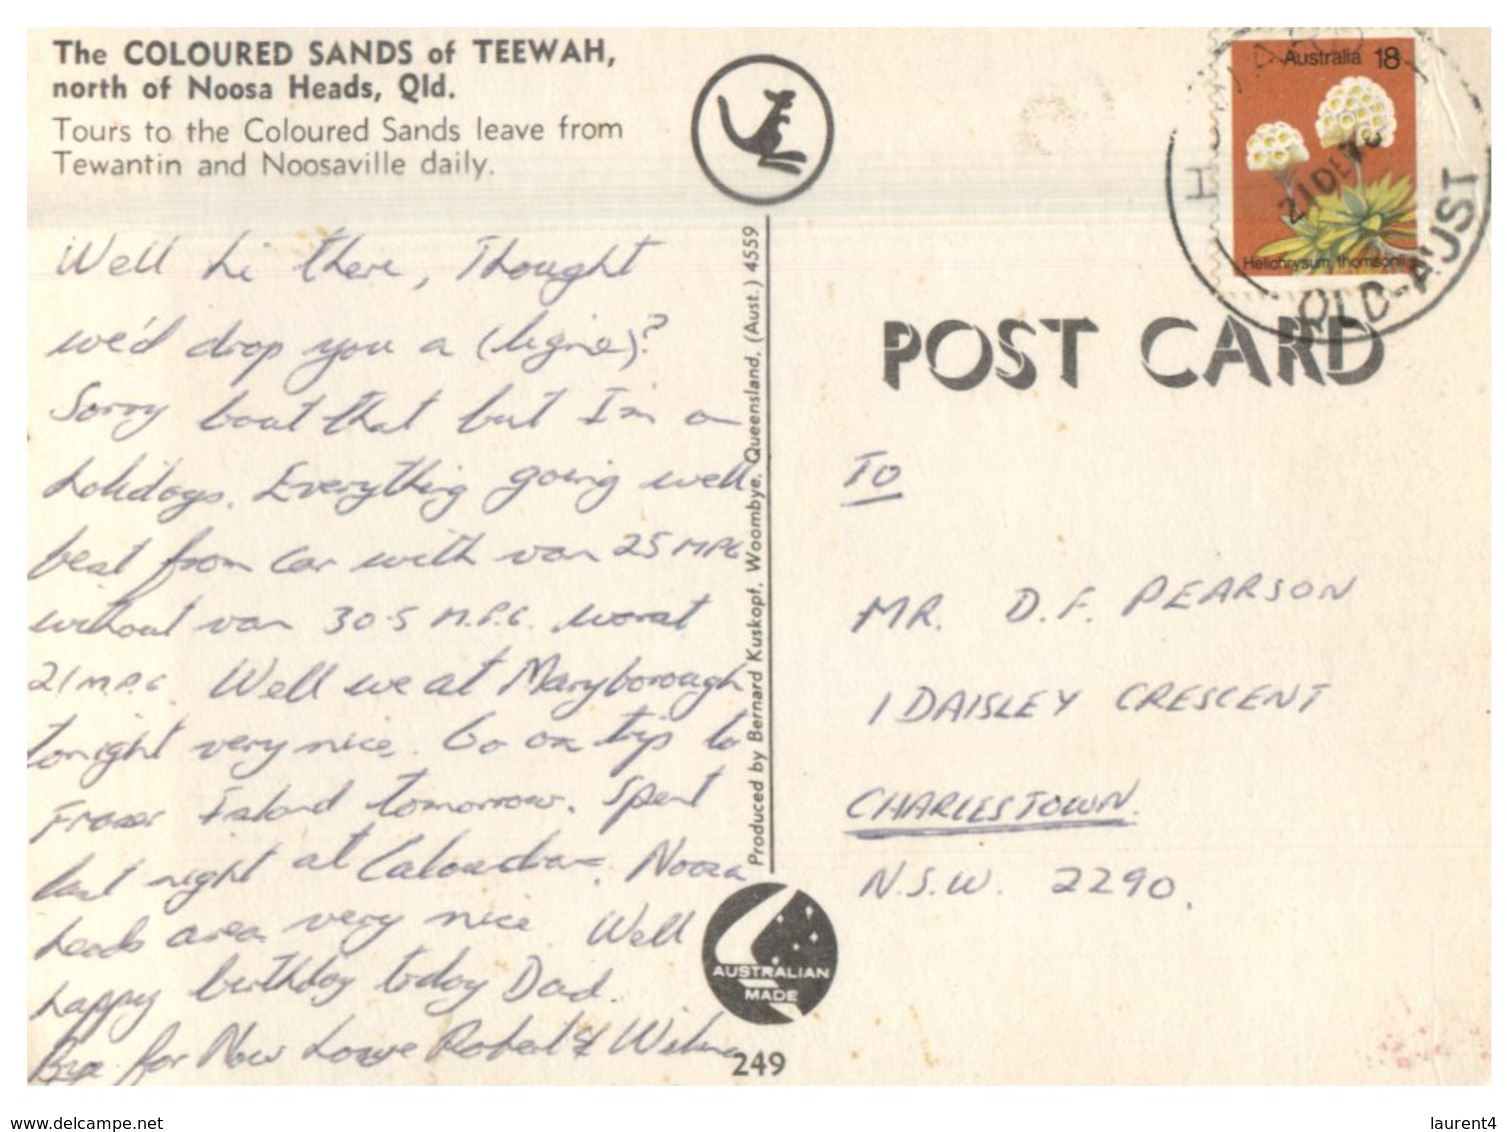 The COLOURED SANDS of TEEWAH,
north of Noosa Heads, Qld.
Tours to the Coloured Sands leave from
Tewantin and Noosaville daily.
Well hi there, Thought
we'd drop you a
Sorry bout that but I'm on
holidays. Everything going well
best from car with van 25 MPG
without van 30.5 M.P.G. worst
21 M.P.G. Well we at Maryborough
tonight very nice. Go on trip to
Fraser Island tomorrow. Spent
last night at Caloundra. Noosa
heads area very nice. Well
happy birthday today Dad.
Bye for Now Love Robert & Wilma
Produced by Bernard Kuskopf, Woombye, Queensland, (Aust.) 4559
AUSTRALIAN
MADE
249
Australia 18
Helichrysum thomsonii
21 DE
QLD-AUST
POST CARD
TO
MR. D.F. PEARSON
1 DAISLEY CRESCENT
CHARLESTOWN.
N.S.W. 2290.
www.delcampe.net
laurent4